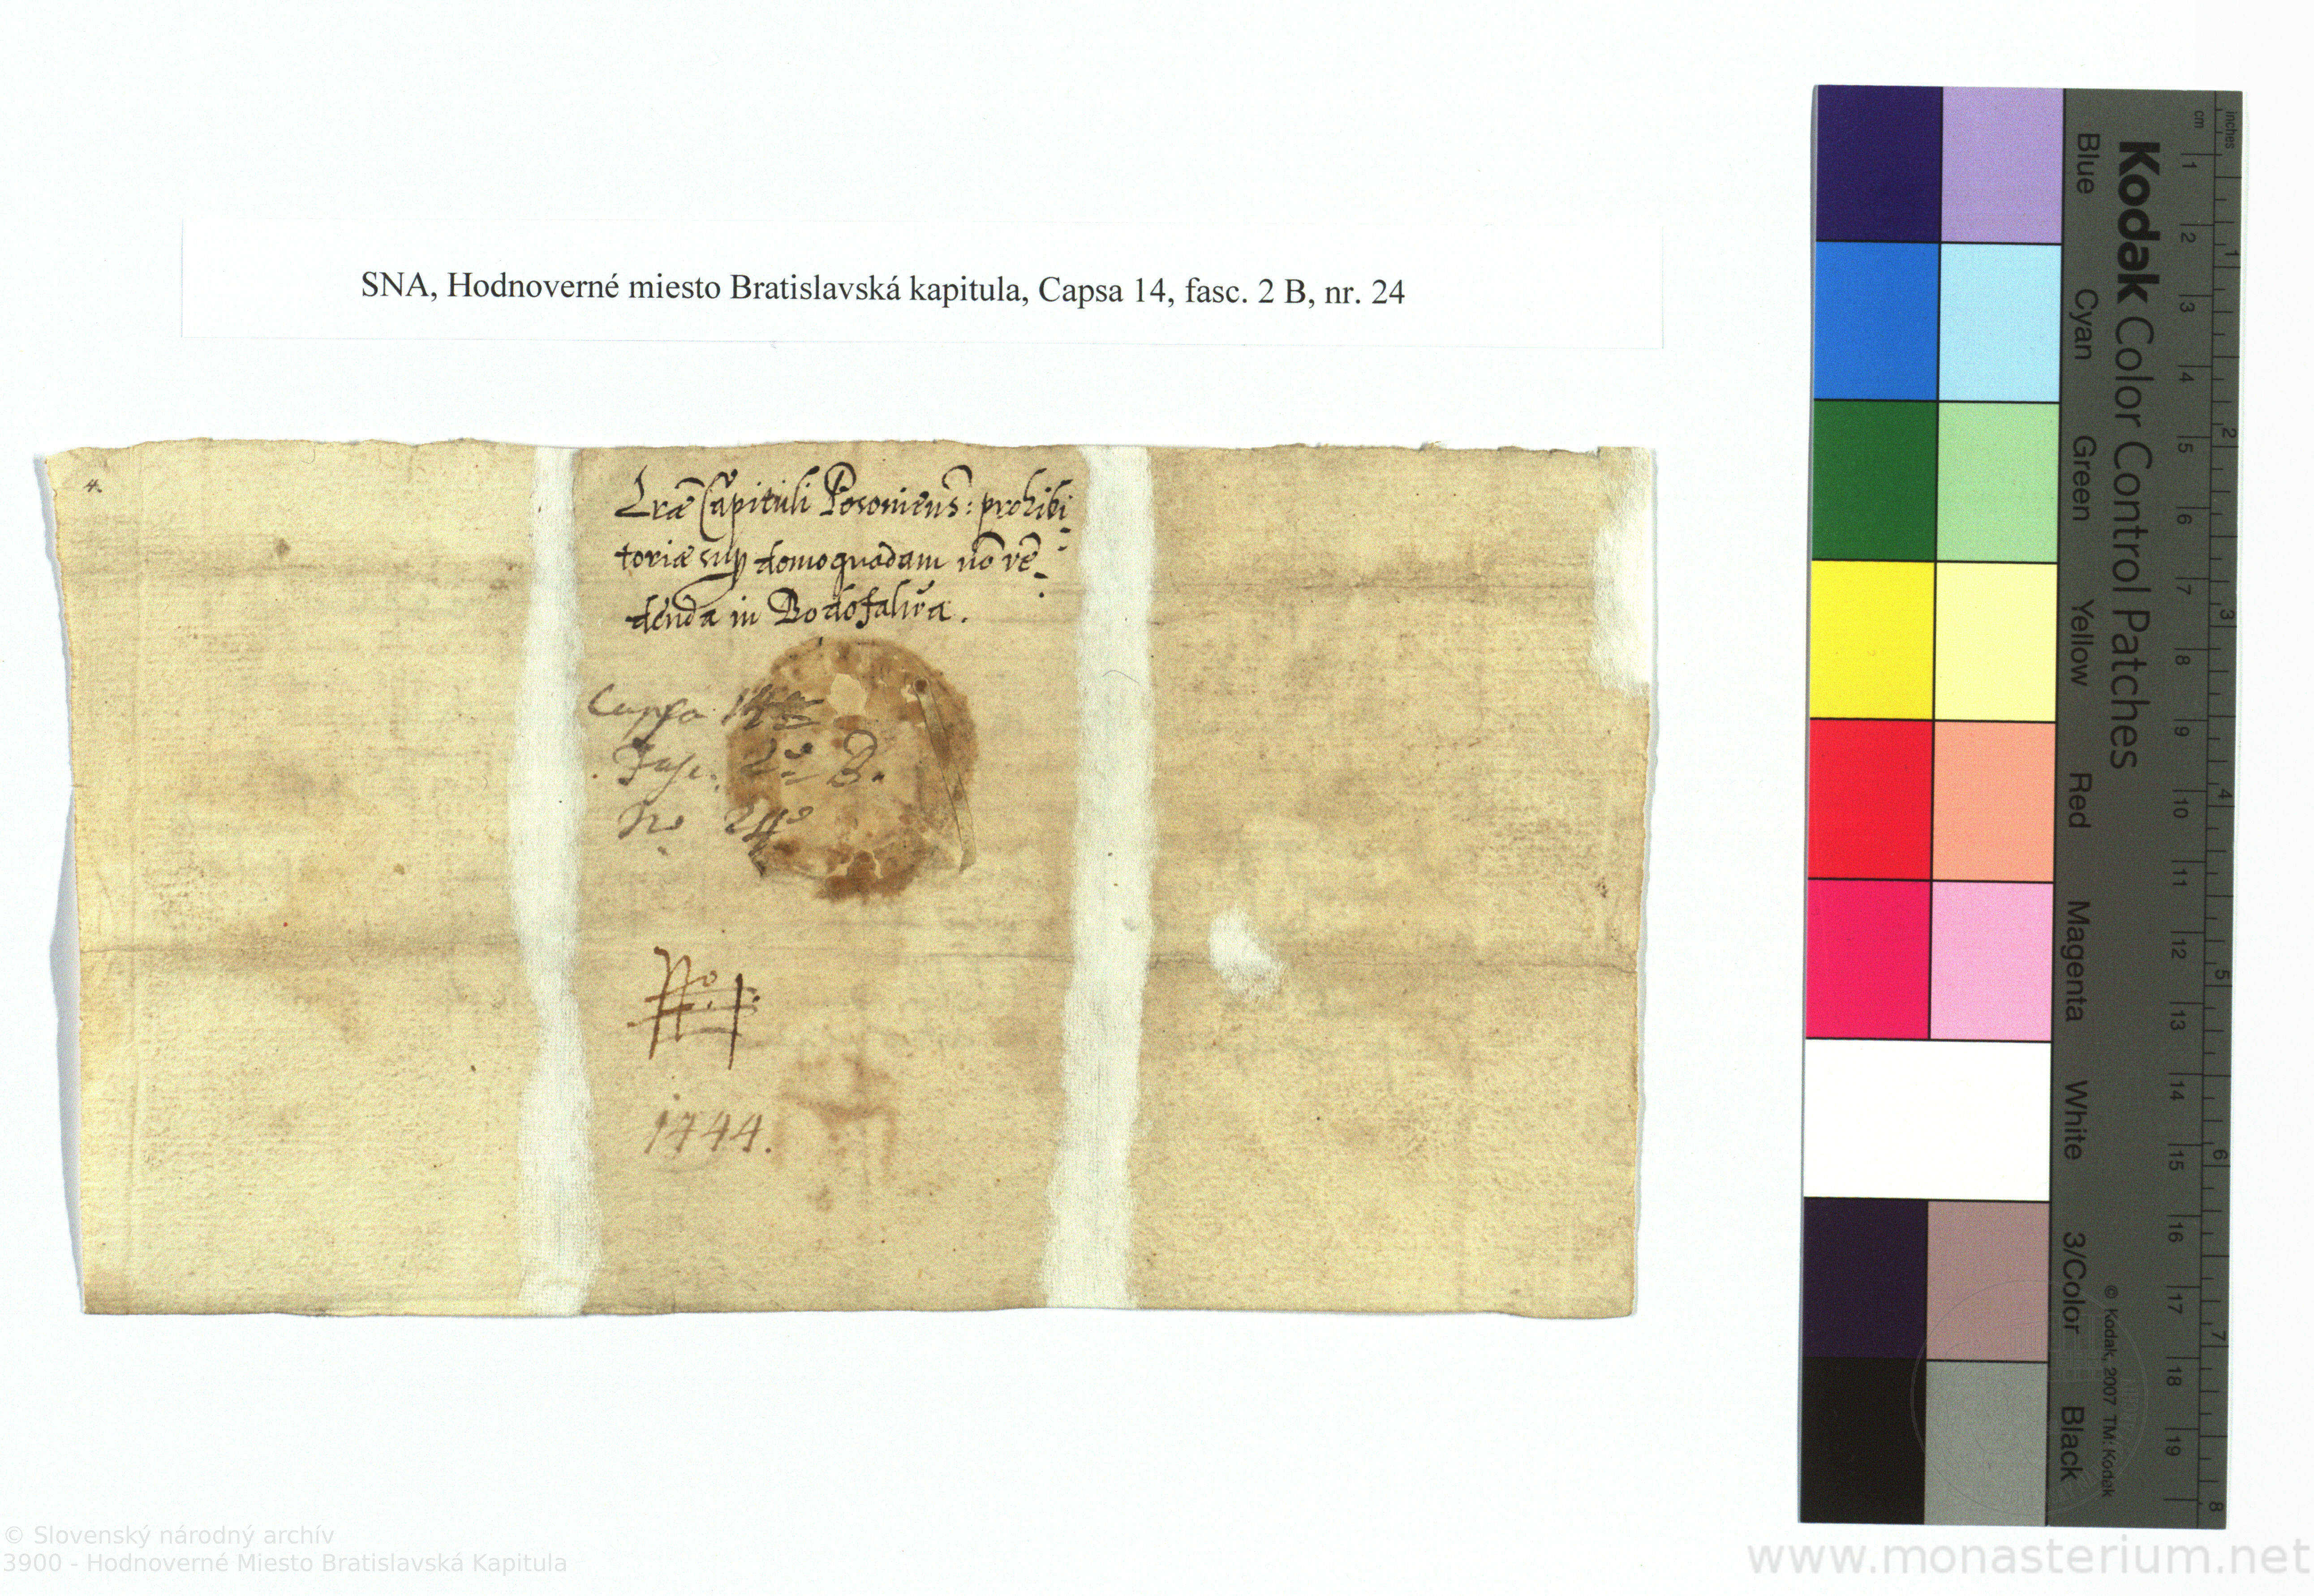 SNA, Hodnoverné miesto Bratislavská kapitula, Capsa 14, fasc. 2 B, nr. 24
4.
Lr̃æ Capituli Posonieñs: prohibi
toriæ sup domo quadam nõ vẽ
denda in Bodofalw̃a.
Capsa 14
Fasc. 2º B.
Nº 24º
Nº 1.
1744.
Kodak Color Control Patches
Blue Cyan Green Yellow Red Magenta White 3/Color Black
© Kodak, 2007 TM: Kodak
cm 1 2 3 4 5 6 7 8 9 10 11 12 13 14 15 16 17 18 19
inches 1 2 3 4 5 6 7 8
© Slovenský národný archív
3900 - Hodnoverné Miesto Bratislavská Kapitula
www.monasterium.net